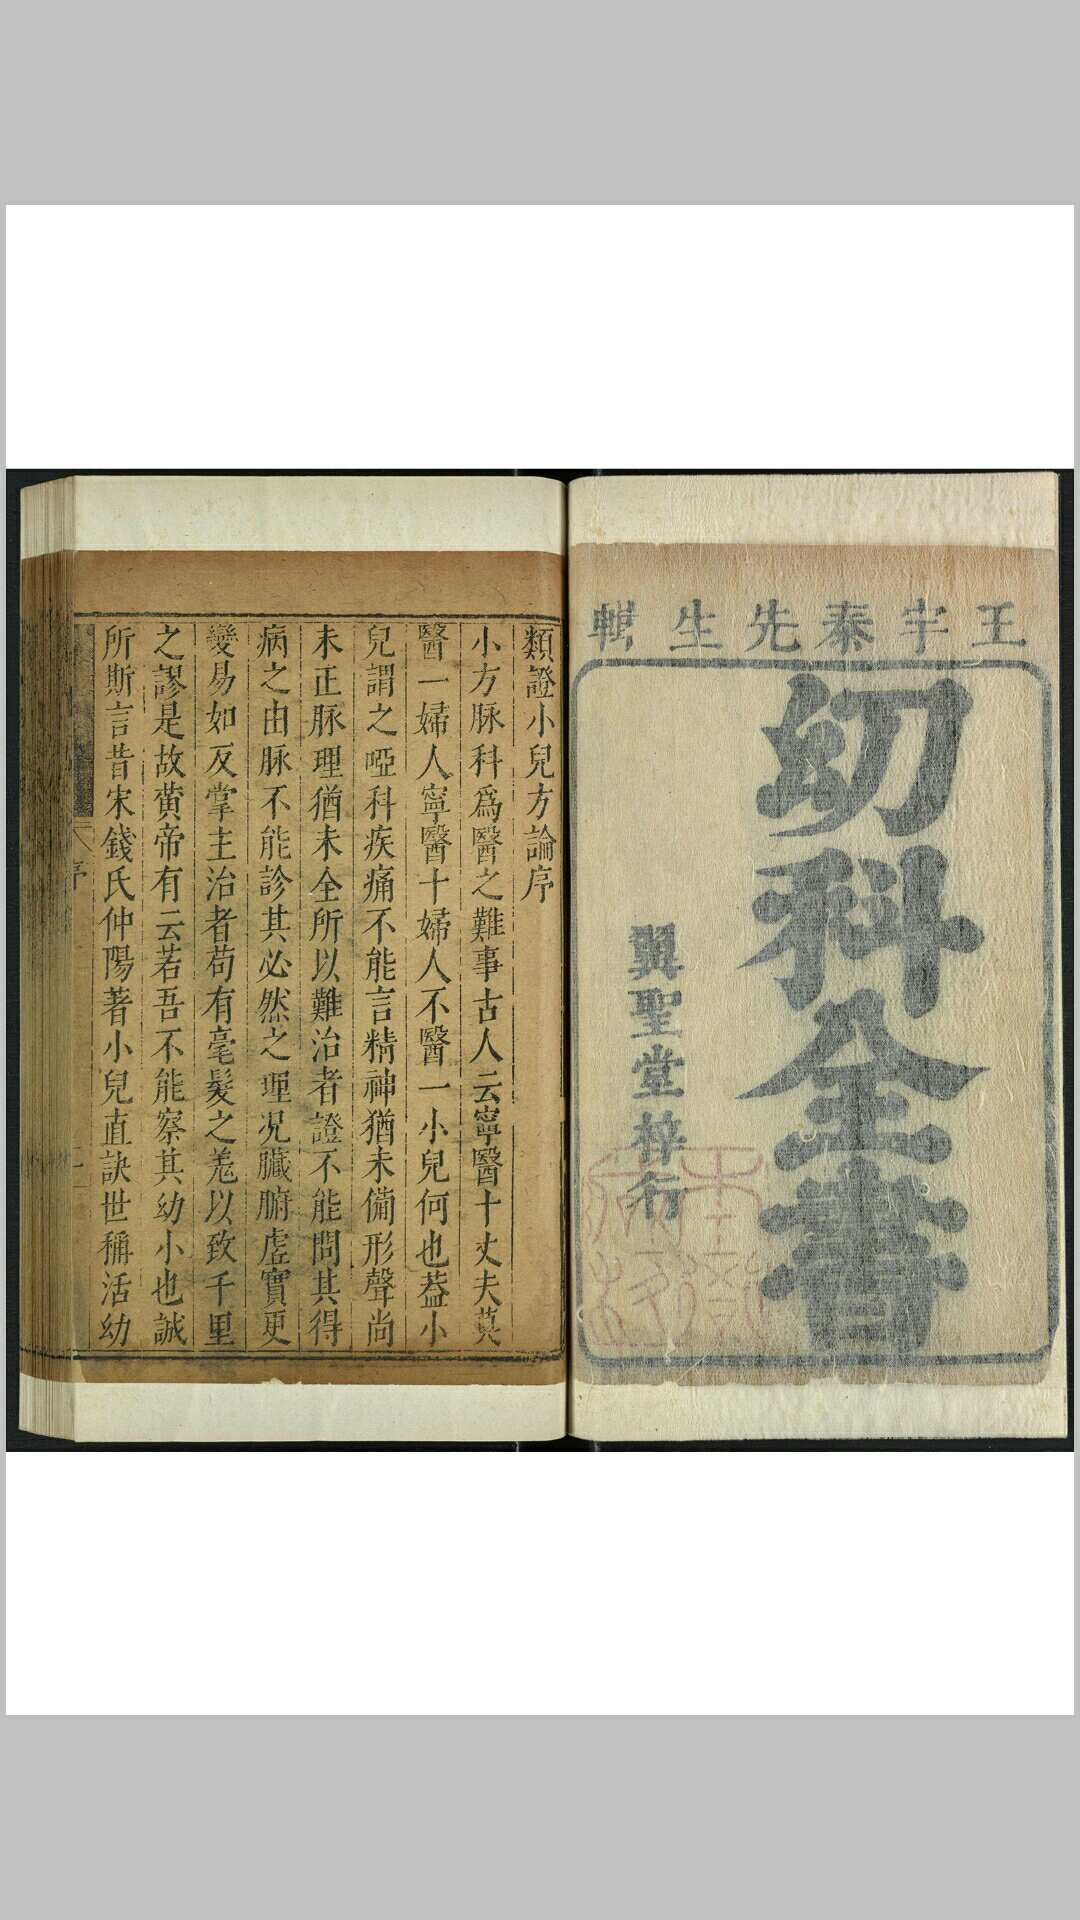 王宇泰先生輯
幼科全書
翼聖堂梓行
類證小兒方論序
小方脉科爲醫之難事古人云寧醫十丈夫莫
醫一婦人寧醫十婦人不醫一小兒何也葢小
兒謂之啞科疾痛不能言精神猶未備形聲尚
未正脉理猶未全所以難治者證不能問其得
病之由脉不能診其必然之理况臟腑虛實更
變易如反掌主治者苟有毫髮之差以致千里
之謬是故黄帝有云若吾不能察其幼小也誠
所斯言昔宋錢氏仲陽著小兒直訣世稱活幼
序